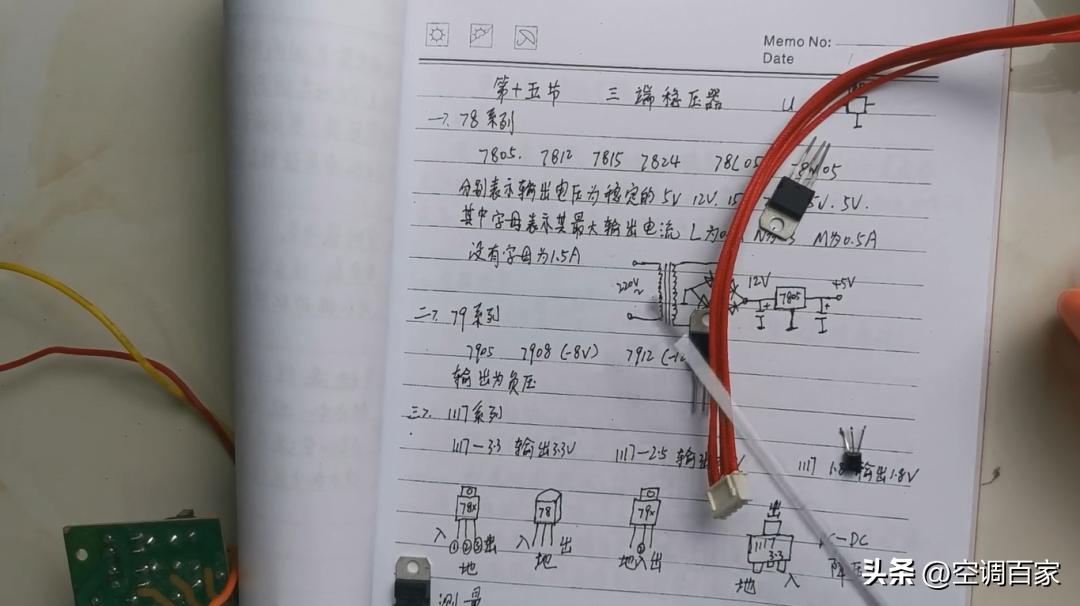 Memo No:
Date
第十五节 三端稳压器 U
一、78系列
7805. 7812 7815 7824 78L05 05
分别表示输出电压为稳定的 5V 12V. 15 5V. 5V.
其中字母表示其最大输出电流 L为0. N为 M为0.5A
没有字母为1.5A
220V~ 12V 7805 +5V
二、79系列
7905 7908 (-8V) 7912 (-1
输出为负压
三、1117系列
1117-3.3 输出3.3V 1117-2.5 输出 V 1117 1.8 输出1.8V
78x 78 79x 出
入 ① ② ③ 出 入 出 ① 1117 3.3 -DC
地 地 地 入 出 地 入 降压
测量
头条 @空调百家